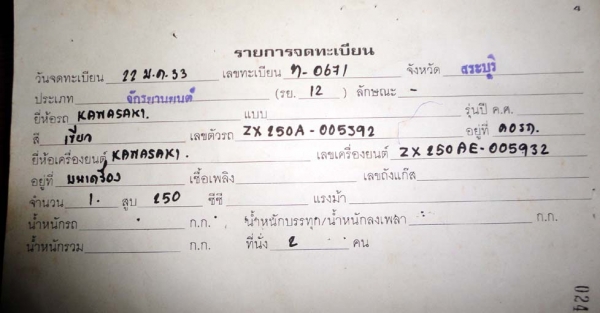 รายการจดทะเบียน
วันจดทะเบียน 22 ม.ค.33 เลขทะเบียน ท-0671 จังหวัด สระบุรี
ประเภท จักรยานยนต์ (รย. 12 ) ลักษณะ -
ยี่ห้อรถ KAWASAKI. แบบ รุ่นปี ค.ศ.
สี เขียว เลขตัวรถ ZX250A-005392 อยู่ที่ คอรถ
ยี่ห้อเครื่องยนต์ KAWASAKI. เลขเครื่องยนต์ ZX250AE-005932
อยู่ที่ เชื้อเพลิง เลขถังแก๊ส
จำนวน 1. สูบ 250 ซีซี แรงม้า
น้ำหนักรถ ก.ก. น้ำหนักบรรทุก/น้ำหนักลงเพลา ก.ก.
น้ำหนักรวม ก.ก. ที่นั่ง 2 คน
024